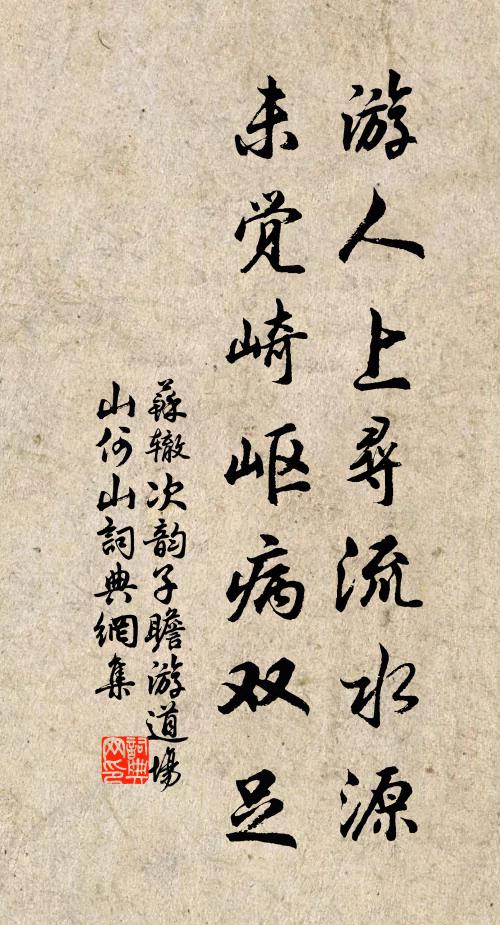 游人上尋流水源
未觉崎岖病双足
蘇辙次韵子瞻游道場
山何山詞典網集
詞典网印